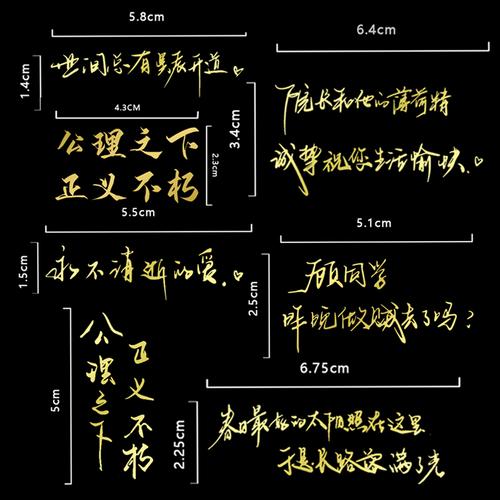 5.8cm
1.4cm
世间总有 开道。
4.3CM
公理之下
正义不朽
2.3cm
3.4cm
6.4cm
院长和他的薄荷
诚挚祝您生活愉快.
5.5cm
1.5cm
永不消逝的爱.
5.1cm
2.5cm
顾同学
昨晚做贼去了吗?
5cm
公理之下
正义不朽
6.75cm
2.25cm
春日最好的太阳照在这里
于是长路落满了光